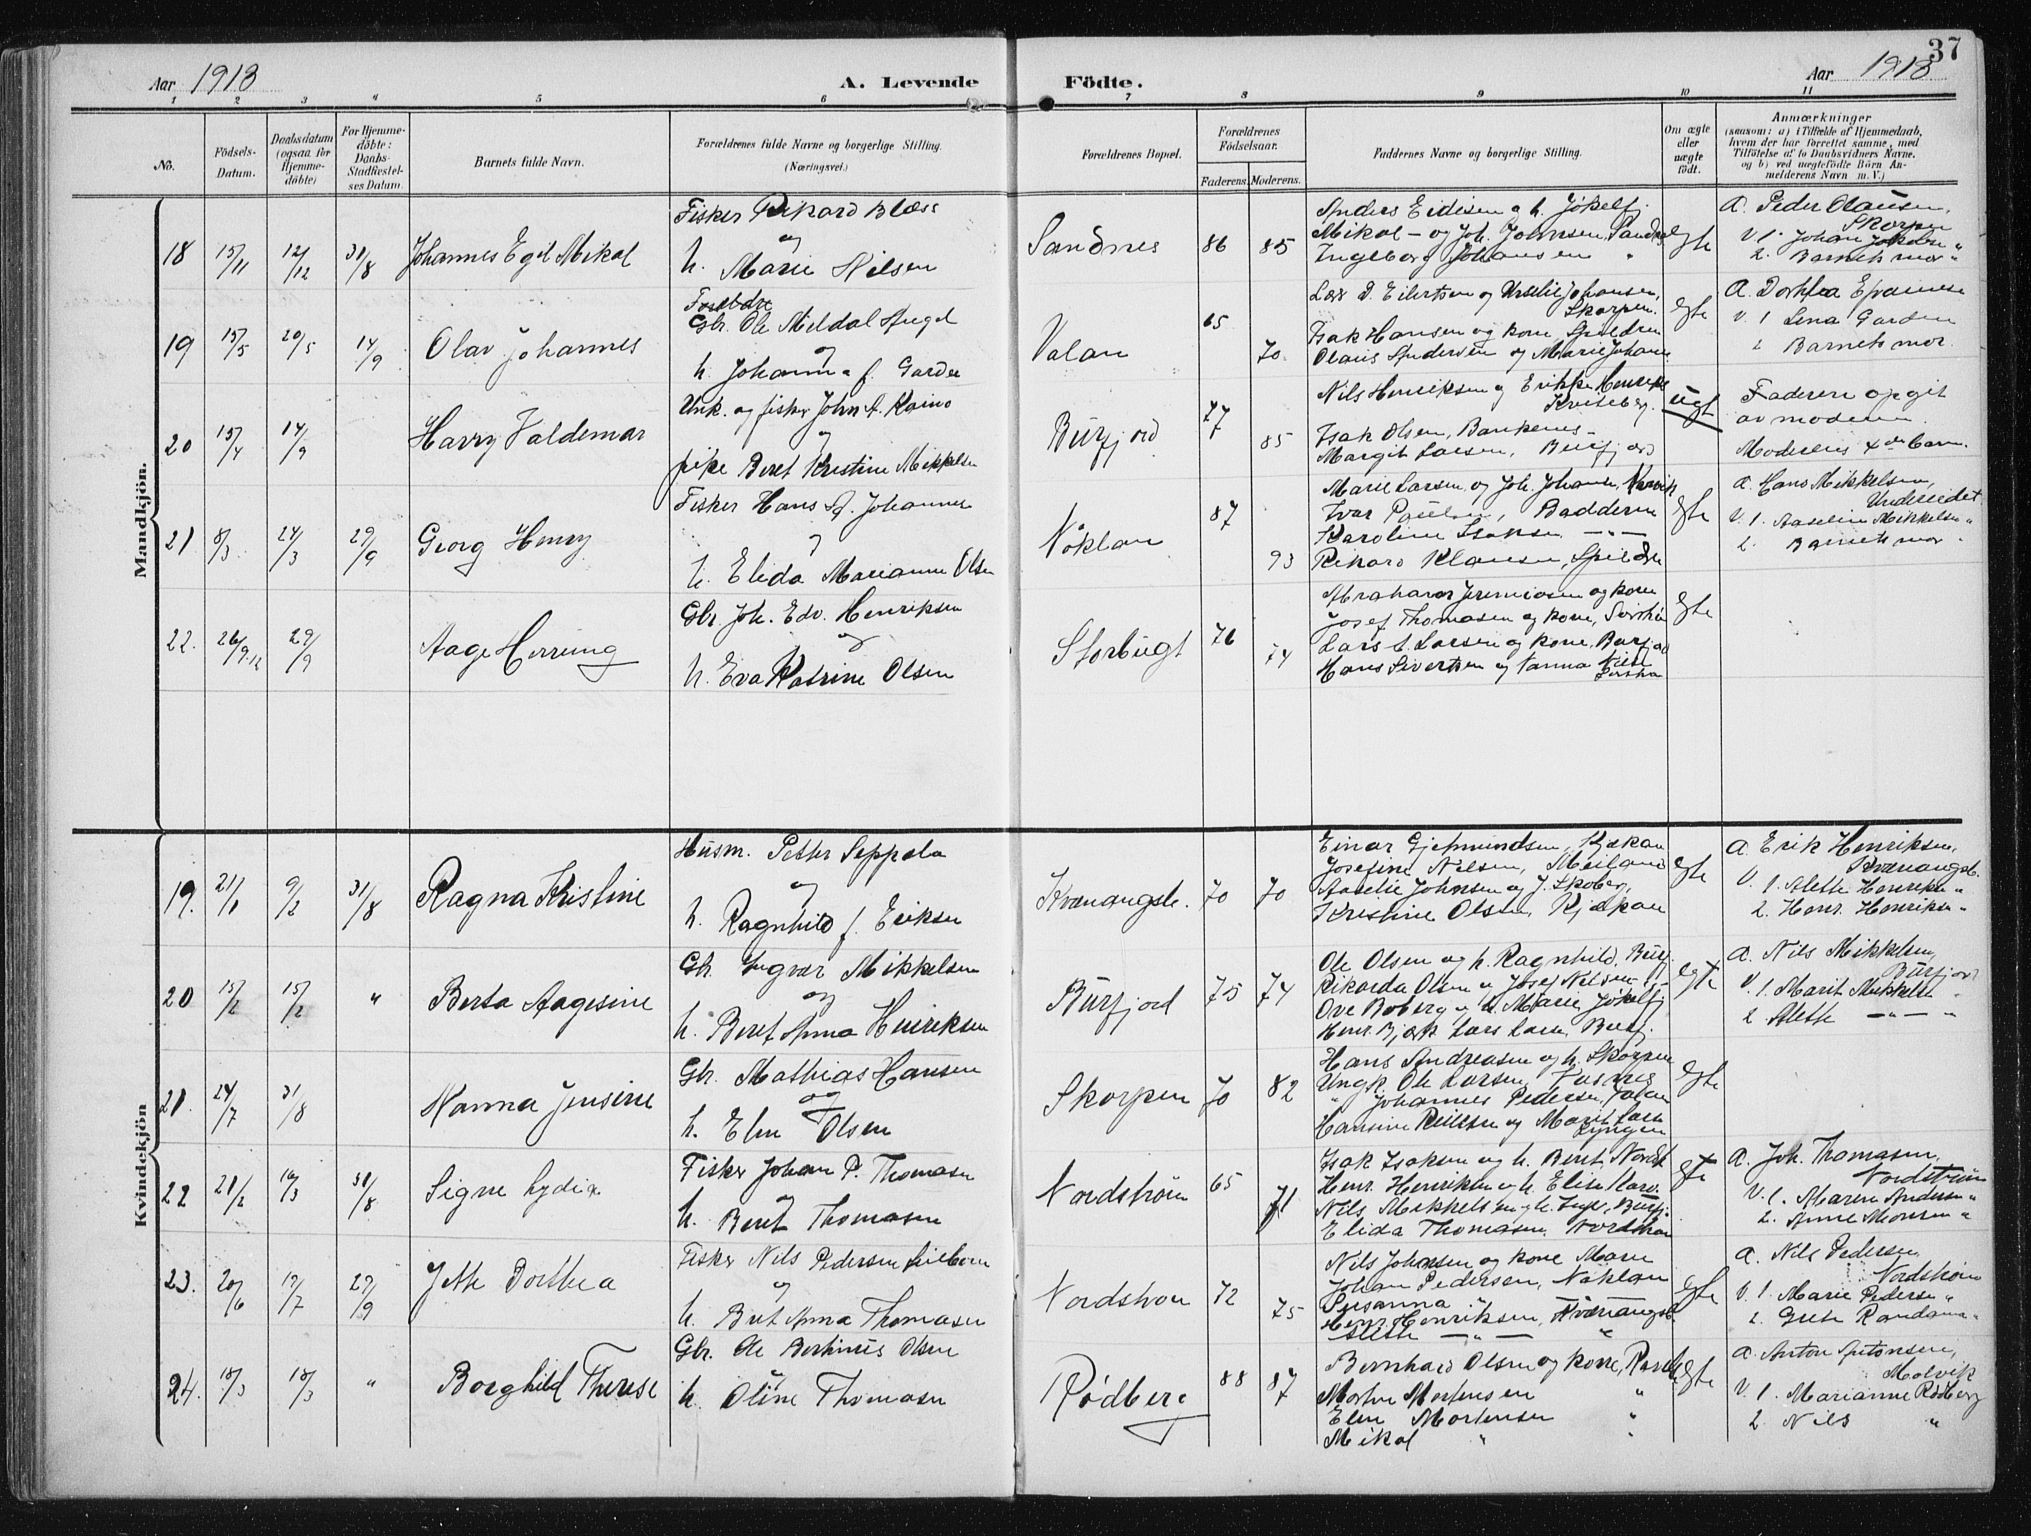 37
Aar 1913
A. Levende
Födte.
Aar 1913
1 2 3 4 5 6 7 8 9 10 11
No.
Födsels-
Datum.
Daabsdatum
(ogsaa for
Hjemme-
döbte)
For Hjemme-
döbte:
Daabs-
Stadfæstel-
ses Datum.
Barnets fulde Navn.
Forældrenes fulde Navne og borgerlige Stilling.
(Næringsvei.)
Forældrenes Bopæl.
Forældrenes
Födselsaar.
Faderens. Moderens.
Faddernes Navne og borgerlige Stilling.
Om ægte
eller
uægte
født.
Anmærkninger
(saasom: a) i Tilfælde af Hjemmedaab,
hvem der har forrettet samme, med
Tilföielse af to Daabsvidners Navne.
og b) ved uægtefödte Börn An-
melderens Navn m. V.)
Mandkjön.
18 15/11 12/12 31/8 Johannes Egil Mikal
Fisker Rikard Blæss
og
h. Marie Nilsen
Sandnes 86 85
Anders Eidisen og h. Jökelfj.
Mikal - og Joh. Johnsen, Sandn
Ingeborg Johansen "
Egte
A. Peder Olausen,
Skorpen
V 1. Johan Jakobs "
2. Barnets mor "
19 15/5 20/5 14/9 Olav Johannes
Forældre
Gbr. Ole Meldal
og
h. Johanna f. Garden
Valan 65 70
Lars D. Eilertsen og Urselie Johansen,
Skorpen.
Isak Hansen og kone Spildren
Olaus Andersen og Marie Johans
Egte
A. Dorthea
V. 1 Lena Garden
2 Barnets mor.
20 15/4 14/9 Harry Valdemar
Unk. og fisker John A. Kaino
og
pike Beret Kristine Mikkelsen
Burfjord 77 85
Nils Henriksen og Erikke Henriks
Isak Olsen,
Margit Larsen, Burfjord
Ugt
Faderen opgit
av moderen.
Moderens 4de barn.
21 8/3 24/3 29/9 Georg Henry
Fisker Hans A. Johannes
og
h. Elida Marianne Olsen
Nöklan 87 93
Marie Larsen og Joh. Johans,
Ivar Paulsen, Badderen
Karoline Isaksen — " —
Rikard Klausen, Spildre
Egte
A. Hans Mikkelsen,
Undereidet
V. 1. Aaseline Mikkelse "
2. Barnets mor "
22. 26/9.12 29/9 Aage Herrung
Gbr. Joh. Edv. Henriksen
og
h. Eva Katrine Olsen
Storbugt 76 74
Abraham Jeremiasen og kone
Josef Thomasen og kone,
Lars L. Larsen og kone, Burfjord
Hans Sivertsen og Hanna Nilse
Egte
Kvindekjön
19. 21/1 9/2 31/8 Ragna Kristine
Husm. Petter Seppola
og
h. Ragnhild f. Eriksen
Kvænangsb. 70 70
Einar Gjetmundsen, Kjækan
Josefine Nilsen, Meiland
Aaselie Johnsen og J. Skoberg,
Kristine Olsen, Kjækan
Egte
A. Erik Henriksen,
Kvænangsb.
V. 1. Alette Henrikse "
2. Henr. Henrikse "
20 15/2 15/2 " Berta Aagesine
Gbr. Ingvar Mikkelsen
og
h. Beret Anna Henriksen
Burfjord 75 74
Ole Olsen og h. Ragnhild, Burfj.
Rikarda Olsen og Josef Nilsen — " —
Ove Boberg og h. Marie, Jökelfj
Henr. Bjerk Lars Larsen, Burfj.
Egte
A. Nils Mikkelsen,
Burfjord
V. 1. Marit Mikkelse "
2. Alette — " — "
21. 24/7 31/8 Hanna Jensine
Gbr. Mathias Hansen
og
h. Elen Olsen
Skorpen 70 82
Hans Andreasen og h. Skorpen
Ungk. Ole Larsen,
" Johannes Pedersen, Valan
Hansine Nilssen og Marit Larse
Lyngen
Egte
22 21/2 16/3 31/8 Signe Lydia
Fisker Johan P. Thomasen
og
h. Beret Thomasen
Nordström 65 71
Isak Isaksen og h. Beret, Nordst
Henr. Henriksen og h. Elise Karv.
Nils Mikkelsen og h. Inge, Burfj.
Elida Thomasen, Nordström
Egte
A. Joh. Thomasen,
Nordström
V. 1. Maren Andersen "
2. Anne Monsen "
23. 20/6 17/7 29/9 Jette Dorthea
Fisker Nils Pedersen
og
h. Beret Anna Thomasen
Nordström 72 75
Nils Johnsen og kone Maren
Johan Pedersen, Nöklan
Susanna "
Henr. Henriksen, Kvænangsb.
Alette — " — "
Egte
A. Nils Pedersen
Nordström
V. 1. Marie Pederse "
2. Grete "
24. 15/3 18/3 " Borghild Therese
Gbr. Ole Bertinus Olsen
h. Oline Thomasen
Rödberg 88 87
Bernhard Olsen og kone,
Morten Mortensen "
Elen Mortensen "
Mikal " "
Egte
A. Anton Antonsen,
Molvik
V. 1. Marianne Rödberg
2. Nils "